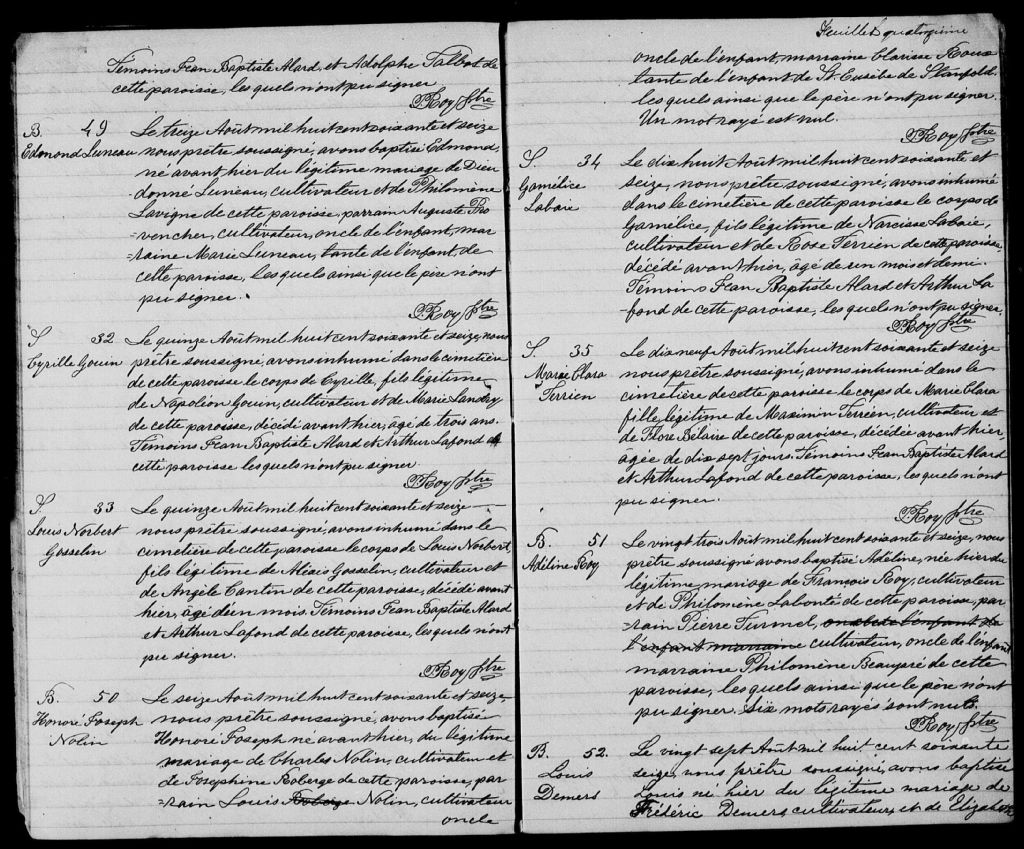 Témoins Jean Baptiste Alard et Adolphe Talbot de
cette paroisse, les quels n'ont pu signer
PRoy Ptre
B. 49 Le treize Août mil huit cent soixante et seize
Edmond Luneau nous prêtre soussigné, avons baptisé Edmond,
né avant hier du légitime mariage de Dieu
donné Luneau, cultivateur et de Philomène
Lavigne de cette paroisse, parrain Auguste Pro
=vencher, cultivateur, oncle de l'enfant, mar
=raine Marie Luneau, tante de l'enfant, de
cette paroisse, les quels ainsi que le père n'ont
pu signer.
PRoy Ptre
S 32 Le quinze Août mil huit cent soixante et seize, nous
Cyrille Gouin prêtre soussigné, avons inhumé dans le cimetière
de cette paroisse le corps de Cyrille, fils légitime
de Napoléon Gouin, cultivateur et de Marie Landry
de cette paroisse, décédé avant hier, âgé de trois ans.
Témoins Jean Baptiste Alard et Arthur Lafond de
cette paroisse les quels n'ont pu signer
PRoy Ptre
S. 33 Le quinze Août mil huit cent soixante et seize
Louis Norbert nous prêtre soussigné, avons inhumé dans le
Gosselin cimetière de cette paroisse le corps de Louis Norbert,
fils légitime de Alexis Gosselin, cultivateur et
de Angèle Cantin de cette paroisse, décédé avant
hier, âgé d'un mois. Témoins Jean Baptiste Alard
et Arthur Lafond de cette paroisse, les quels n'ont
pu signer.
PRoy Ptre
B. 50 Le seize Août mil huit cent soixante et seize
Honoré Joseph nous prêtre soussigné, avons baptisé
Nolin Honoré Joseph né avant hier, du légitime
mariage de Charles Nolin, cultivateur et
de Josephine Roberge de cette paroisse, par
=rain Louis Roberge Nolin, cultivateur
oncle
Feuillet quatorzième
oncle de l'enfant, marraine Clarisse Roux
tante de l'enfant de St. Eusèbe de Stanfold
les quels ainsi que le père n'ont pu signer.
Un mot rayé est nul.
PRoy Ptre
S. 34 Le dix huit Août mil huit cent soixante et
Gamélice seize, nous prêtre soussigné, avons inhumé
Labaie dans le cimetière de cette paroisse le corps de
Gamélice, fils légitime de Narcisse Labaie,
cultivateur et de Rose Terrien de cette paroisse,
décédé avant hier, âgé de un mois et demi.
Témoins Jean Baptiste Alard et Arthur La
fond de cette paroisse, les quels n'ont pu signer,
PRoy Ptre
S. 35 Le dix neuf Août mil huit cent soixante et seize
Marie Clara nous prêtre soussigné, avons inhumé dans le
Terrien cimetière de cette paroisse le corps de Marie Clara
fille légitime de Maximin Terrien, cultivateur et
de Flore Bélaire de cette paroisse, décédée avant hier,
âgée de dix sept jours. Témoins Jean Baptiste Alard
et Arthur Lafond de cette paroisse, les quels n'ont
pu signer.
PRoy Ptre
B. 51 Le vingt trois Août mil huit cent soixante et seize, nous
Adéline Roy prêtre soussigné avons baptisé Adéline, née hier du
légitime mariage de François Roy, cultivateur
et de Philomène Labonté de cette paroisse, par
=rain Pierre Turmel, oncle de l'enfant de
l'enfant marraine cultivateur, oncle de l'enfant
marraine Philomène Beaupré de cette
paroisse, les quels ainsi que le père n'ont
pu signer. Six mots rayés sont nuls.
PRoy Ptre
B. 52. Le vingt sept Août mil huit cent soixante
Louis seize, nous prêtre soussigné, avons baptisé
Demers Louis né hier du légitime mariage de
Frédéric Demers cultivateur, et de Elizabeth